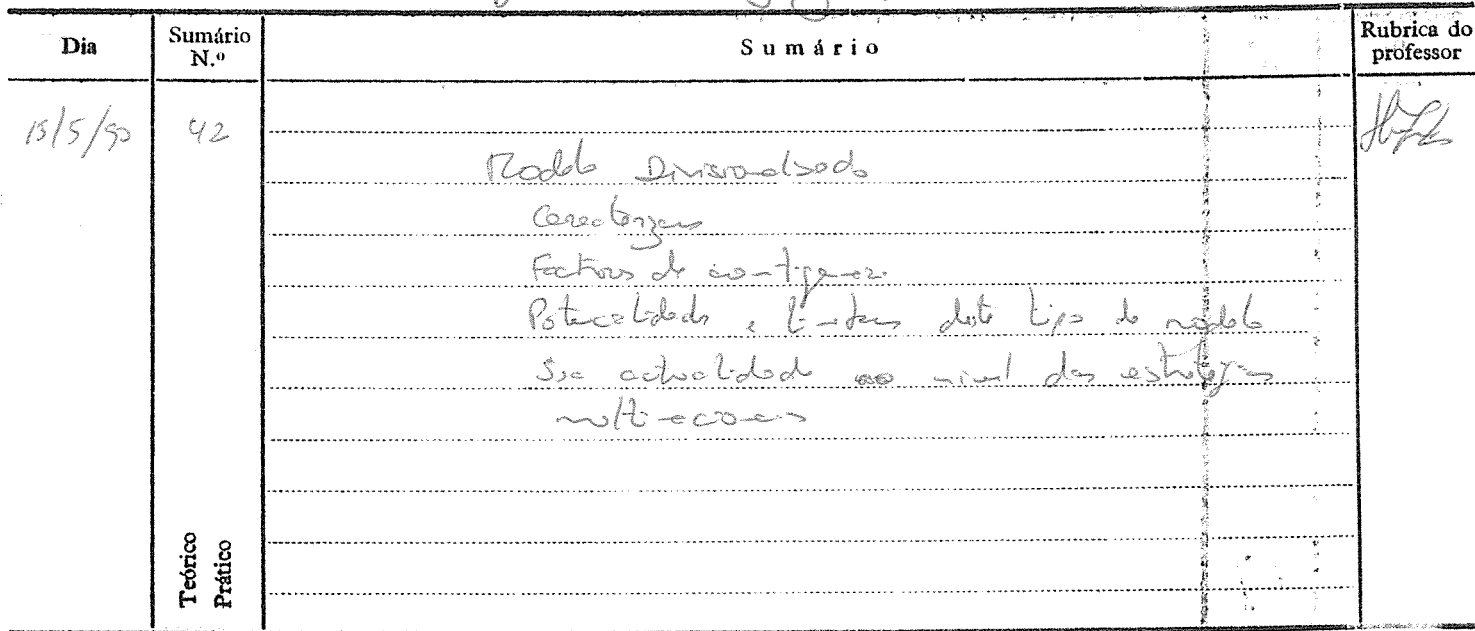 Dia
Sumário N.º
Sumário
Rubrica do professor
15/5/90
42
Modelo Divisionalizado
Caracterização
Factores de contigencia
Potencialidades e limitações deste tipo de modelo
Sua actualidade ao nivel das estratégias
multinacionais
Teórico
Prático